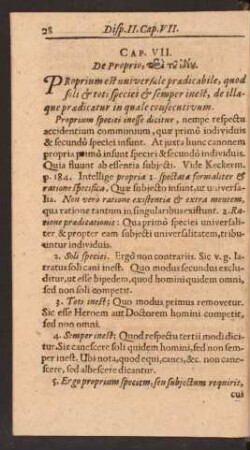 28 Disp. II. Cap. VII.
CAP. VII.
De Proprio, τοῦ ἰδίου.
PRoprium est universale prædicabile, quod
soli & toti speciei & semper inest, de illa-
que prædicatur in quale consecutivum.
Proprium speciei inesse dicitur, nempe respectu
accidentium communium, quæ primò individuis
& secundò speciei insunt. At juxta hunc canonem
propria primò insunt speciei & secundò individuis.
Quia fluunt ab essentia subjecti. Vide Keckerm.
p. 184. Intellige propria 1. spectata formaliter &
ratione specifica. Quæ subjecto insunt, ut universa-
lia. Non verò ratione existentiæ & extra mentem,
qua ratione tantum in singularibus existunt. 2. Ra-
tione prædicationis: Qua primò speciei universali-
ter & propter eam subjecti universalitatem, tribu-
untur individuis.
2. Soli speciei. Ergò non contrariis. Sic v. g. la-
tratus soli cani inest. Quo modus secundus exclu-
ditur, ut esse bipedem, quod homini quidem omni,
sed non soli competit.
3. Toti inest; Quo modus primus removetur.
Sic esse Heroem aut Doctorem homini competit,
sed non omni.
4. Semper inest; Quod respectu tertii modi dici-
tur. Sic canescere soli quidem homini, sed non sem-
per inest. Ubi nota, quod equi, canes, &c. non cane-
scere, sed albescere dicantur.
5. Ergo proprium speciem, seu subjectum requirit,
cui